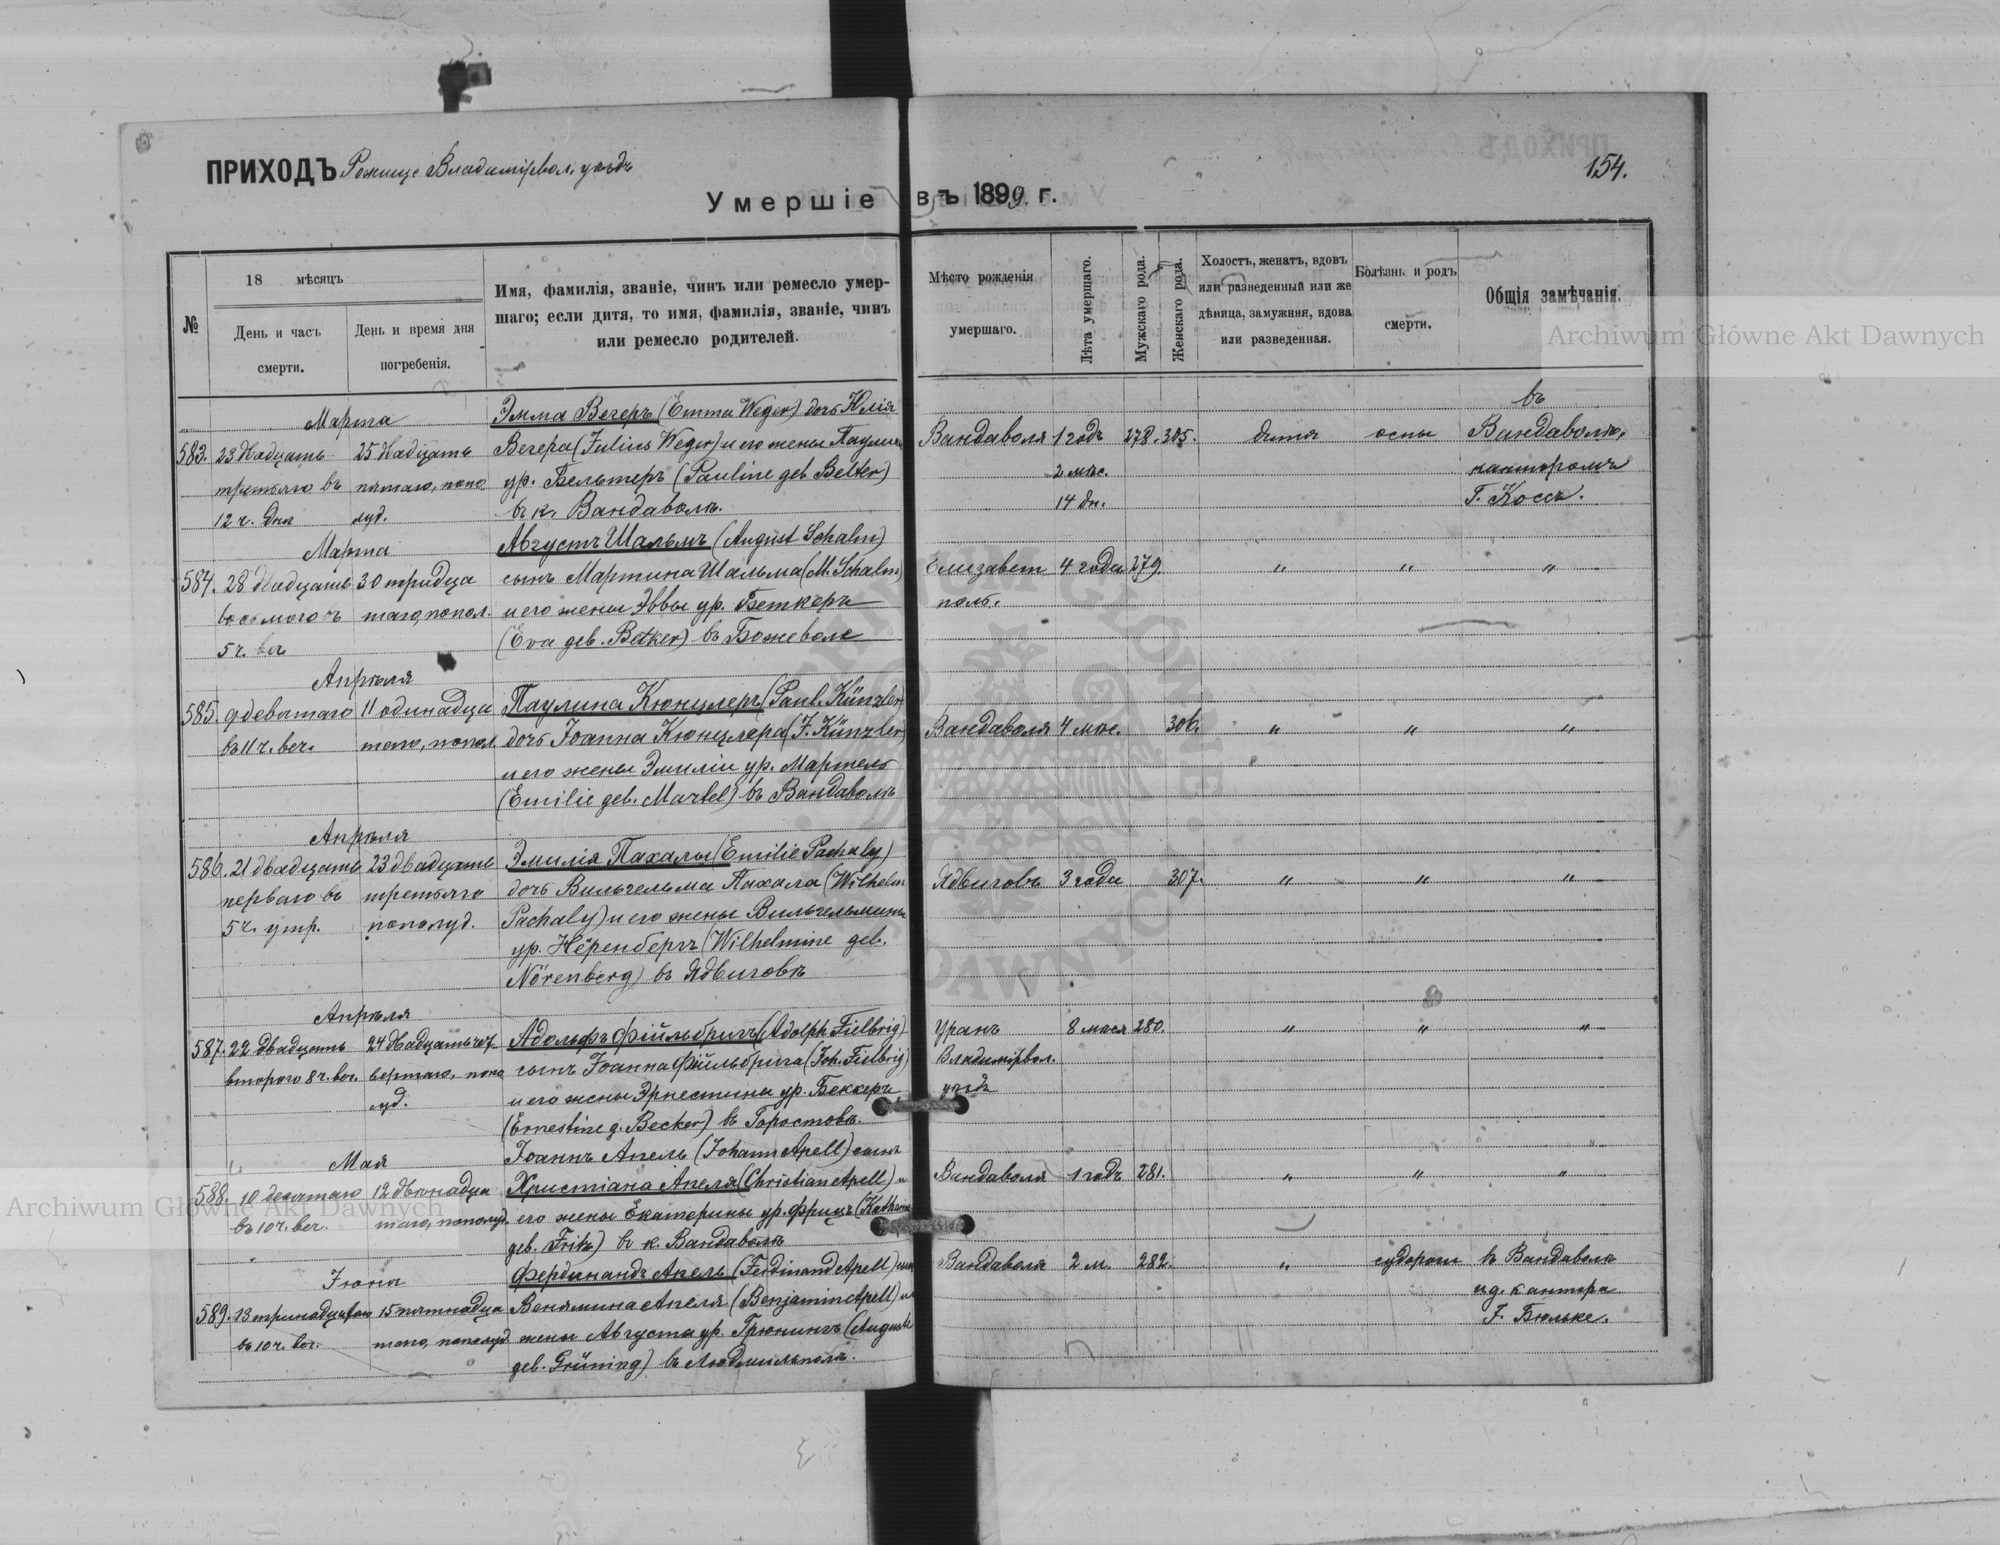 ПРИХОДЪ Рожище Владимірвол. уѣздъ
154.
Умершіе въ 1899. г.
№
18 мѣсяцъ
День и часъ смерти.
День и время дня погребенія.
Имя, фамилія, званіе, чинъ или ремесло умер-
шаго; если дитя, то имя, фамилія, званіе, чинъ
или ремесло родителей.
Мѣсто рожденія
умершаго.
Лѣта умершаго.
Мужскаго рода.
Женскаго рода.
Холостъ, женатъ, вдовъ
или разведенный или же
дѣвица, замужняя, вдова
или разведенная.
Болѣзнь и родъ
смерти.
Общія замѣчанія.
Archiwum Główne Akt Dawnych
Марта
Эмма Вегеръ (Emma Weger) дочь Юлія
въ
583. 23 двадцать 25 двадцать Вегера (Julius Weger) и его жены Паулины Вандаволя 1 годъ 278. 305. дитя оспы Вандаволѣ,
третьяго въ пятаго, попо ур. Бельтеръ (Pauline geb Belter) 2 мѣс. канторомъ
12 ч. дня луд. въ к. Вандаволѣ. 14 дн. Г. Коссъ.
Марта Августъ Шальмъ (August Schalm)
584. 28 двадцать 30 тридца сынъ Мартина Шальма (M. Schalm) Елизавет 4 года 279. " " "
восьмого въ таго, попол. и его жены Эввы ур. Беткеръ поль.
5 ч. веч (Eva geb. Betker) въ Божеволе
Апрѣля
585. 9 девятаго 11 одинадца Паулина Кюнцлеръ (Paul. Künzler)
въ 11 ч. веч. таго, попол. дочь Іоанна Кюнцлера (J. Künzler) Вандаволя 4 мѣс. 306. " " "
и его жены Эмиліи ур. Мартель
(Emilie geb. Martel) въ Вандаволѣ
Апрѣля
586. 21 двадцать 23 двадцать Эмилія Пахалы (Emilie Pachaly)
перваго въ третьяго дочь Вильгельма Пахала (Wilhelm Ядвиговъ 3 года 307. " " "
5 ч. утр. пополуд. Pachaly) и его жены Вильгельмины
ур. Нёренбергъ (Wilhelmine geb.
Nörenberg) въ Ядвиговѣ
Апрѣля
587. 22 двадцать 24 двадцать чет Адольфъ Фійльбригъ (Adolph Fielbrig) Уранъ 8 мѣся 280. " " "
второго 8 ч. веч. вертаго, попо сынъ Іоанна Фійльбрига (Joh. Fielbrig) Владимірвол.
луд. и его жены Эрнестины ур. Беккеръ уѣздъ
(Ernestine g. Becker) въ Горостовъ.
Мая Іоаннъ Апель (Johann Apell) сынъ
588. 10 десятаго 12 двѣнадца Христіана Апеля (Christian Apell) и Вандаволя 1 годъ 281. " " "
въ 10 ч. веч. таго, пополуд. его жены Екатерины ур. Фрицъ (Katharina
geb. Fritz) въ к. Вандаволѣ
Іюня Фердинандъ Апель (Ferdinand Apell) сынъ Вандаволя 2 м. 282. " судорог въ Вандаволѣ
589. 13 тринадцатаго 15 пятнадца Веніамина Апеля (Benjamin Apell) и ид. кантора
въ 10 ч. веч. таго, пополуд жены Августа ур. Грюнингъ (Auguste F. Бюльке.
geb. Grüning) въ Людмильполѣ.
Archiwum Główne Akt Dawnych